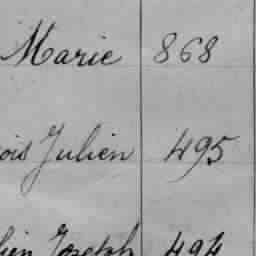 Marie 868
ois Julien 495
lien Joseph 494